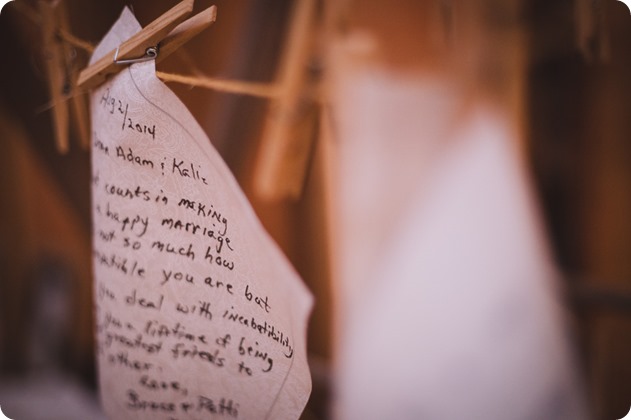 Aug 2/2014
Adam & Kalie
counts in making
a happy marriage
not so much how
you are but
you deal with incobatibility
a lifetime of being
greatest friends to
other.
Love,
Patti